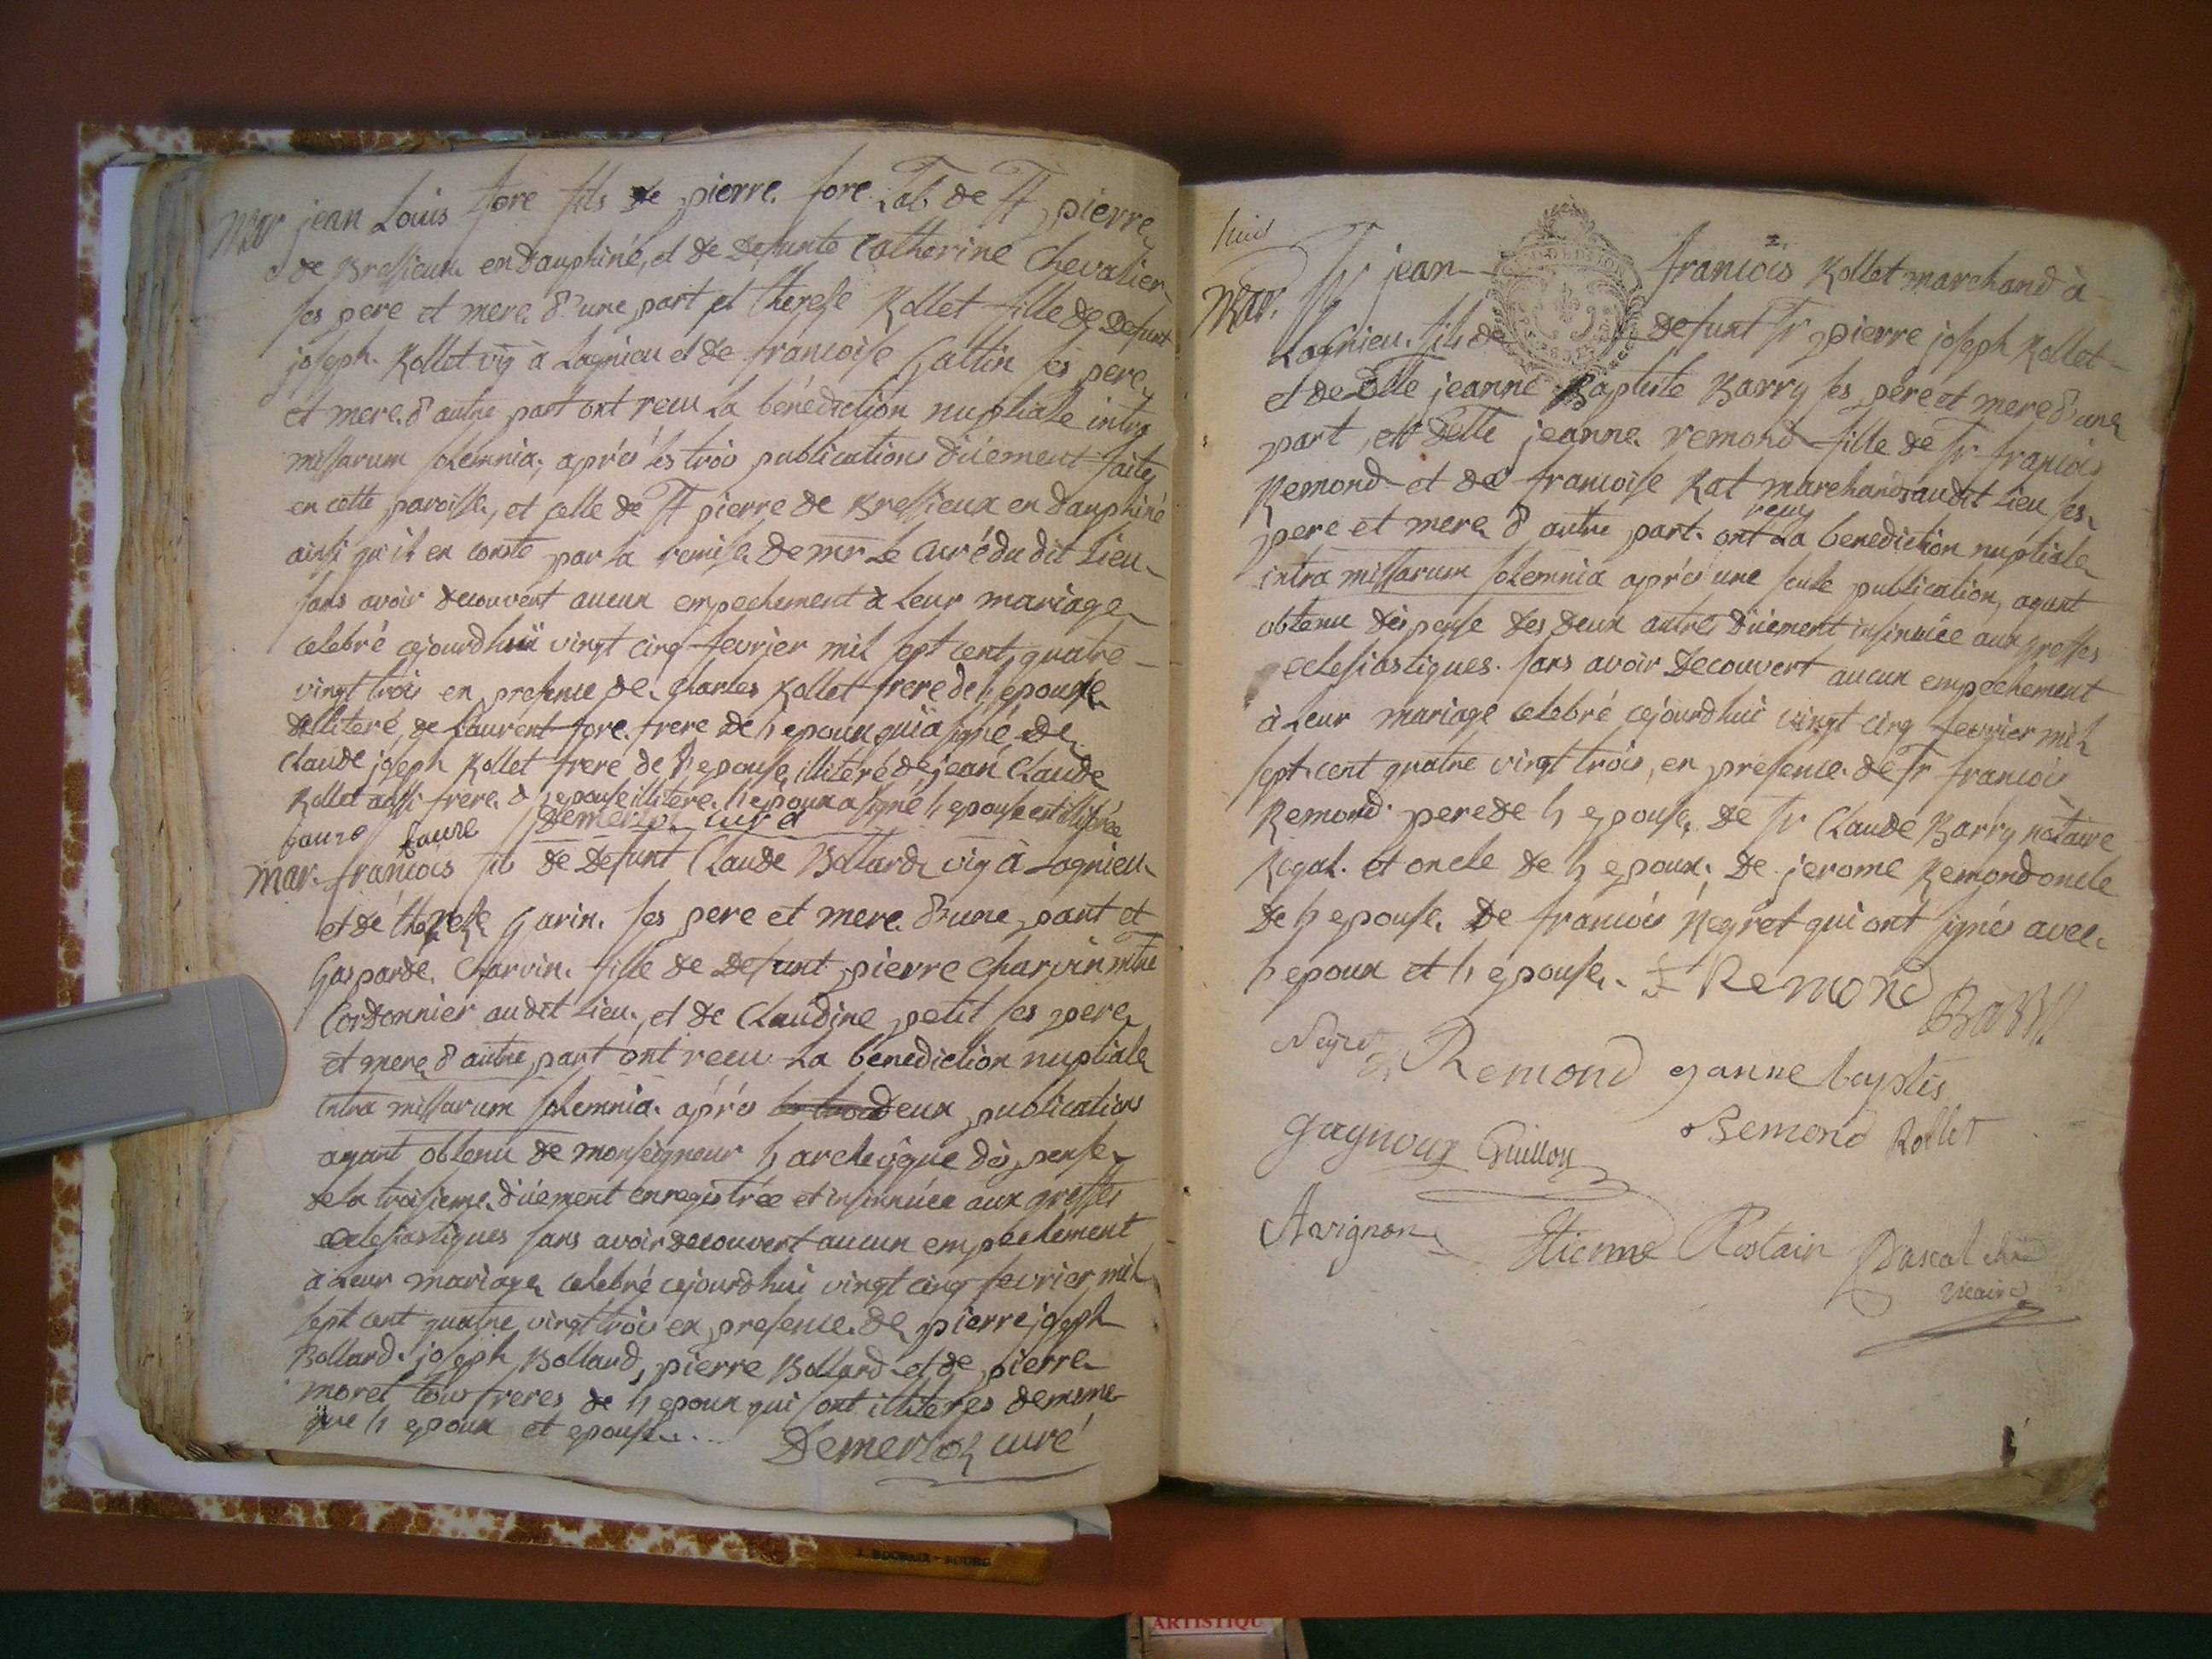 Mar jean Louis fore fils de pierre fore Lab. de St pierre
de Bressieux en dauphiné, et de defunte Catherine Chevalier
ses pere et mere d'une part et therese Rollet fille de defunt
joseph Rollet vig à Lagnieu et de francoise Gattin ses pere
et mere d'autre part ont recu La bénédiction nuptiale intra
missarum solemnia, aprés les trois publications düement faites
en cette paroisse, et celle de St pierre de Bressieux en dauphiné
ainsi qu'il en conste par la remise de mr Le Curé du dit Lieu
sans avoir decouvert aucun empechement à Leur mariage
celebré cejourdhui vingt cinq fevrier mil sept cent quatre
vingt trois en presence de Charles Rollet frere de h epouse
illiteré, de Laurent fore frere de h epoux qui a signé de
Claude joseph Rollet frere de h epouse illiteré de jean Claude
Rollet aussi frere d h epouse illitere. h epoux a signé h epouse est illiterée
faure faure Demerloz curé
Mar. francois fils de defunt Claude Bollard vig à Lagnieu
et de therese Garin. ses pere et mere d'une part et
Gasparde Charvin fille de defunt pierre Charvin mtre
Cordonnier au dit Lieu, et de Claudine petit ses pere
et mere d autre part ont recu La bénédiction nuptiale
intra missarum solemnia aprés les trois deux publications
ayant obtenu de monseigneur h archevêque dispense
de la troisieme düement enregistrée et insinuée aux greffes
eclesiastiques sans avoir decouvert aucun empechement
à Leur mariage celebré cejourdhui vingt cinq fevrier mil
sept cent quatre vingt trois en presence de pierre joseph
Bollard. joseph Bollard, pierre Bollard et de pierre
morel tous freres de h epoux qui sont illiteres de meme
que h epoux et epouse... Demerloz curé
J. ROCHAIX - BOURG
huit
2.
Mar. Sr jean francois Rollet marchand à
Lagnieu. fils de defunt Sr pierre joseph Rollet
et de Delle jeanne Baptiste Barry ses pere et mere d'une
part, et Delle jeanne remond fille de Sr francois
Remond et de francoise Rat marchands audit Lieu ses
pere et mere d autre part. ont recu La benediction nuptiale
intra missarum solemnia aprés une seule publication, ayant
obtenu dispense des deux autres düement insinuée aux greffes
eclesiastiques. sans avoir decouvert aucun empechement
à Leur mariage celebré cejourdhui vingt cinq fevrier mil
sept cent quatre vingt trois, en présence de Sr francois
Remond pere de h epouse, de Sr Claude Barry notaire
Royal. et oncle de h epoux, de jerome Remond oncle
de h epouse. de francois Neyret qui ont signés avec
h epoux et h epouse. f Remond Barry
Neyret Remond janne baptis
Remond Rollet
Gagnoux Guillon
Avignon Etienne Rostain Pascal
vicaire
ARTISTIQU